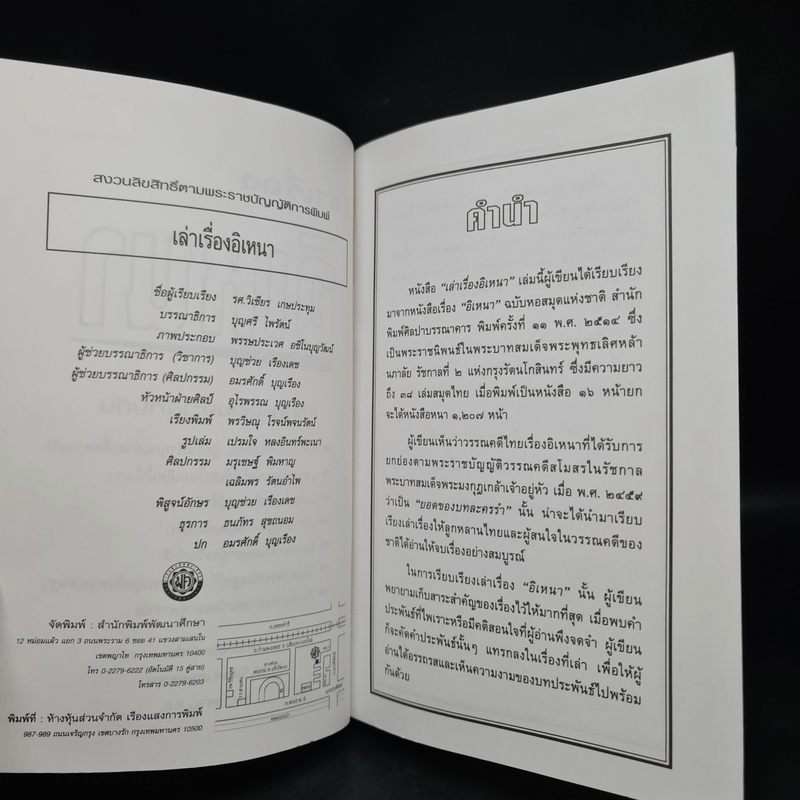 สงวนลิขสิทธิ์ตามพระราชบัญญัติการพิมพ์
เล่าเรื่องอิเหนา
ชื่อผู้เรียบเรียง รศ.วิเชียร เกษประทุม
บรรณาธิการ บุญศรี ไพรัตน์
ภาพประกอบ พรรษประเวศ อชิโนบุญวัฒน์
ผู้ช่วยบรรณาธิการ (วิชาการ) บุญช่วย เรืองเดช
ผู้ช่วยบรรณาธิการ (ศิลปกรรม) อมรศักดิ์ บุญเรือง
หัวหน้าฝ่ายศิลป์ อุไรพรรณ บุญเรือง
เรียงพิมพ์ พรวิษณุ โรจน์พจนรัตน์
รูปเล่ม เปรมใจ หลงอินทร์พะเนา
ศิลปกรรม มรุเชษฐ์ พิมหาญ
เฉลิมพร รัตนอำไพ
พิสูจน์อักษร บุญช่วย เรืองเดช
ธุรการ ธนภัทร สุขถนอม
ปก อมรศักดิ์ บุญเรือง
จัดพิมพ์ : สำนักพิมพ์พัฒนาศึกษา
12 หม่อมแผ้ว แยก 3 ถนนพระราม 6 ซอย 41 แขวงสามเสนใน
เขตพญาไท กรุงเทพมหานคร 10400
โทร 0-2279-6222 (อัตโนมัติ 15 คู่สาย)
โทรสาร 0-2279-6203
พิมพ์ที่ : ห้างหุ้นส่วนจำกัด เรืองแสงการพิมพ์
987-989 ถนนเจริญกรุง เขตบางรัก กรุงเทพมหานคร 10500
คำนำ
หนังสือ "เล่าเรื่องอิเหนา" เล่มนี้ผู้เขียนได้เรียบเรียง
มาจากหนังสือเรื่อง "อิเหนา" ฉบับหอสมุดแห่งชาติ สำนัก
พิมพ์ศิลปาบรรณาคาร พิมพ์ครั้งที่ ๑๑ พ.ศ. ๒๕๑๔ ซึ่ง
เป็นพระราชนิพนธ์ในพระบาทสมเด็จพระพุทธเลิศหล้า
นภาลัย รัชกาลที่ ๒ แห่งกรุงรัตนโกสินทร์ ซึ่งมีความยาว
ถึง ๓๘ เล่มสมุดไทย เมื่อพิมพ์เป็นหนังสือ ๑๖ หน้ายก
จะได้หนังสือหนา ๑,๒๐๗ หน้า
ผู้เขียนเห็นว่าวรรณคดีไทยเรื่องอิเหนาที่ได้รับการ
ยกย่องตามพระราชบัญญัติวรรณคดีสโมสรในรัชกาล
พระบาทสมเด็จพระมงกุฎเกล้าเจ้าอยู่หัว เมื่อ พ.ศ. ๒๔๕๙
ว่าเป็น "ยอดของบทละครรำ" นั้น น่าจะได้นำมาเรียบ
เรียงเล่าเรื่องให้ลูกหลานไทยและผู้สนใจในวรรณคดีของ
ชาติได้อ่านให้จบเรื่องอย่างสมบูรณ์
ในการเรียบเรียงเล่าเรื่อง "อิเหนา" นั้น ผู้เขียน
พยายามเก็บสาระสำคัญของเรื่องไว้ให้มากที่สุด เมื่อพบคำ
ประพันธ์ที่ไพเราะหรือมีคติสอนใจที่ผู้อ่านพึงจดจำ ผู้เขียน
ก็จะคัดคำประพันธ์นั้นๆ แทรกลงในเรื่องที่เล่า เพื่อให้ผู้
อ่านได้อรรถรสและเห็นความงามของบทประพันธ์ไปพร้อม
กันด้วย